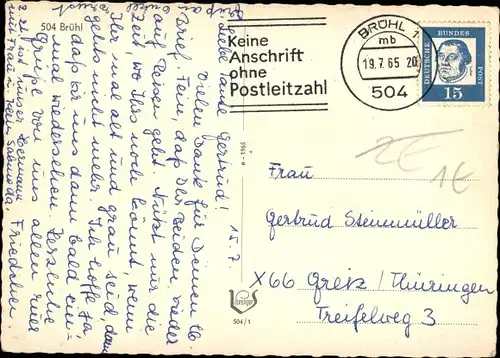 504 Brühl
Keine
Anschrift
ohne
Postleitzahl
BRÜHL 1
mb
19.7.65 20
504
DEUTSCHE BUNDES POST
15
15.7.
Liebe Tante Gertrud!
Vielen Dank für Deinen lb.
Brief. Fein, daß Ihr beiden wieder
auf Reisen geht. Nützt nur die
Zeit wo Ihr's noch könnt, wenn
Ihr mal alt und grau seid dann
geht's nicht mehr. Ich hoffe ja,
daß wir uns dann bald ein-
mal wiedersehen. Herzliche
Grüße von uns allen
e - 1965
504/1
2 €
1 €
Frau
Gertrud Stemmüller
X66 Greiz / Thüringen
Treifelweg 3